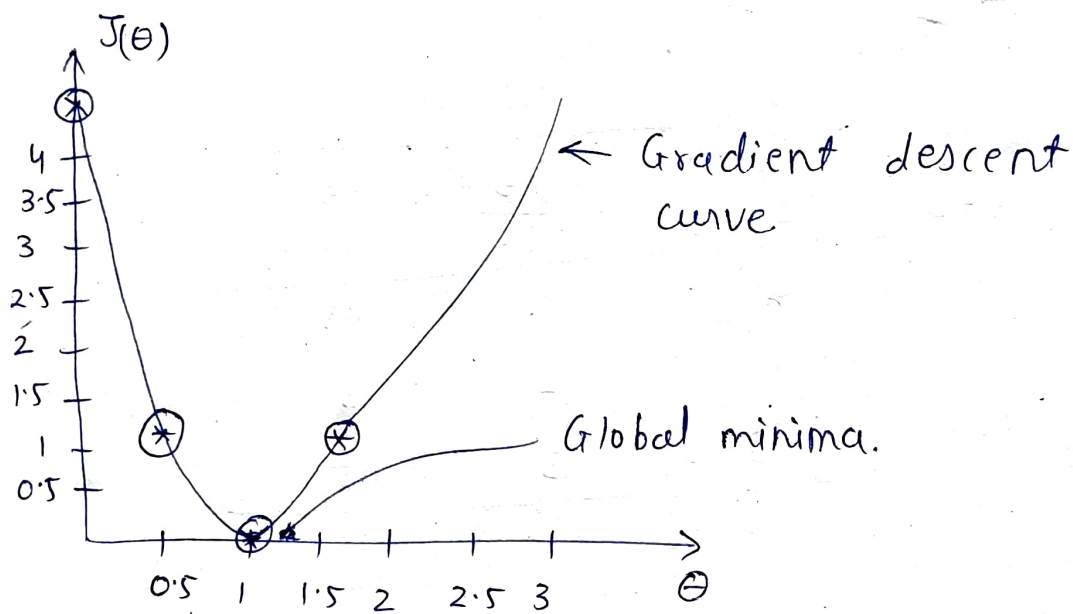 J(θ)
4
3.5
3
2.5
2
1.5
1
0.5
← Gradient descent
curve
Global minima.
0.5 1 1.5 2 2.5 3 θ